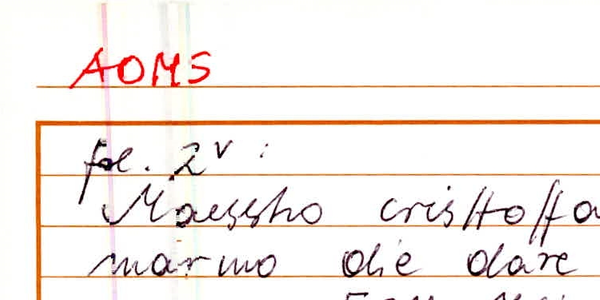 AOMS
fol. 2v :
Maesstro cristtoffa
marmo die dare